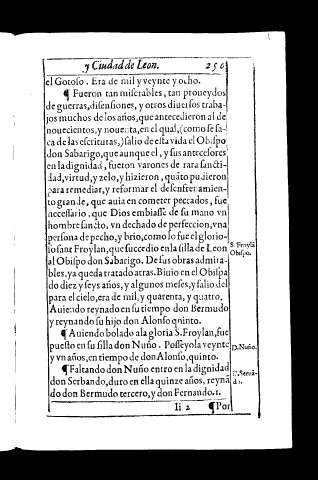 y Ciudad de Leon. 250
el Gotoso. Era de mil y veynte y ocho.
¶ Fueron tan miserables, tan proueydos
de guerras, disensiones, y otros diuersos traba-
jos muchos de los años, que antecedieron al de
nouecientos, y nouenta, en el qual, (como se sa-
ca de las escrituras,) salio de esta vida el Obispo
don Sabarigo, que aunque el, y sus antecesores
en la dignidad, fueron varones de rara sancti-
dad, virtud, y zelo, y hizieron, quãto pudieron
para remediar, y reformar el desenfrenamien-
to grande, que auia en cometer peccados, fue
necessario, que Dios embiasse de su mano vn
hombre sancto, vn dechado de perfeccion, vna
persona de pecho, y brio, como lo fue el glorio-
so sant Froylan, que succedio en la silla de Leon
al Obispo don Sabarigo. De sus obras admira-
bles, ya queda tratado atras. Biuio en el Obispa
do diez y seys años, y algunos meses, y salio del
para el cielo, era de mil, y quarenta, y quatro.
Auiendo reynado en su tiempo don Bermudo
y reynando su hijo don Alonso quinto.
¶ Auiendo bolado a la gloria S. Froylan, fue
puesto en su silla don Nuño. Posseyola veynte
y vn años, en tiempo de don Alonso, quinto.
¶ Faltando don Nuño entro en la dignidad
don Serbando, duro en ella quinze años, reynã
do don Bermudo tercero, y don Fernando. 1.
Ii 2 ¶ Por
S. Froylã
Obispo.
D. Nuño.